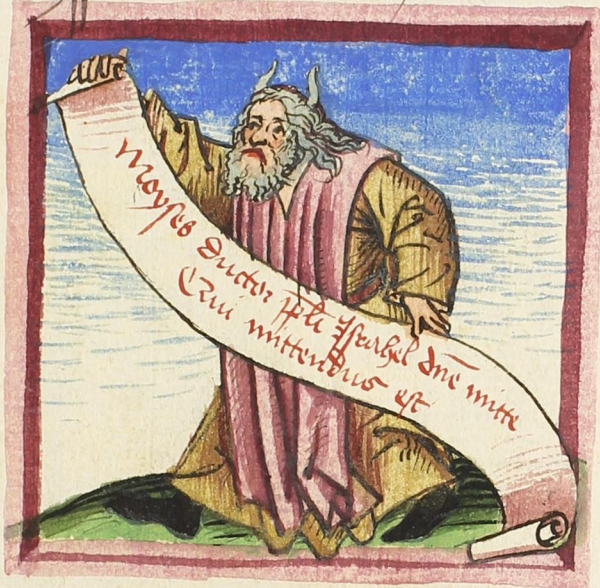 Moyses ductor ppli Israhel dne mitte
Qui mittendus est